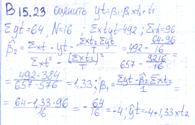 В 15.23 оцените yt=β₁+β₂xt+εt
Σyt=64, N=16; Σxtyt=492; Σxt=96
β̂₂ = (Σxt·yt - Σxt Σyt / N) / (Σxt² - (Σxt)² / N) = (492 - 64·96 / 16) / (657 - 9216 / 16) =
= (492-384) / (657-576) = 1,33; β̂₁ = (Σyt-β₂Σxt) / N =
= (64-1,33·96) / 16 = -64 / 16 = -4; ŷt=-4+1,33xt